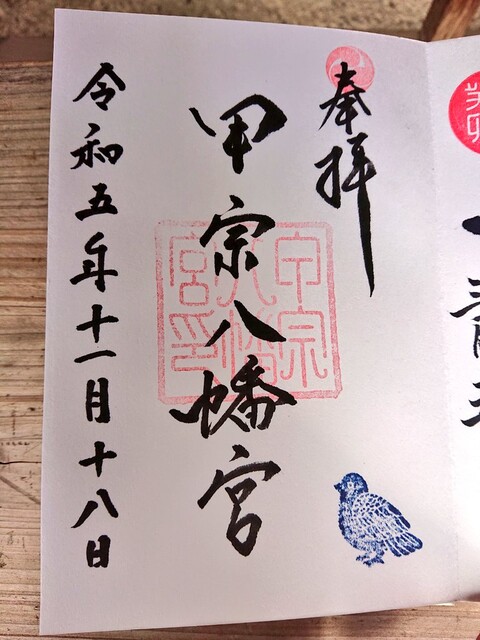 奉拝
甲宗八幡宮
甲宗八幡宮印
令和五年十一月十八日